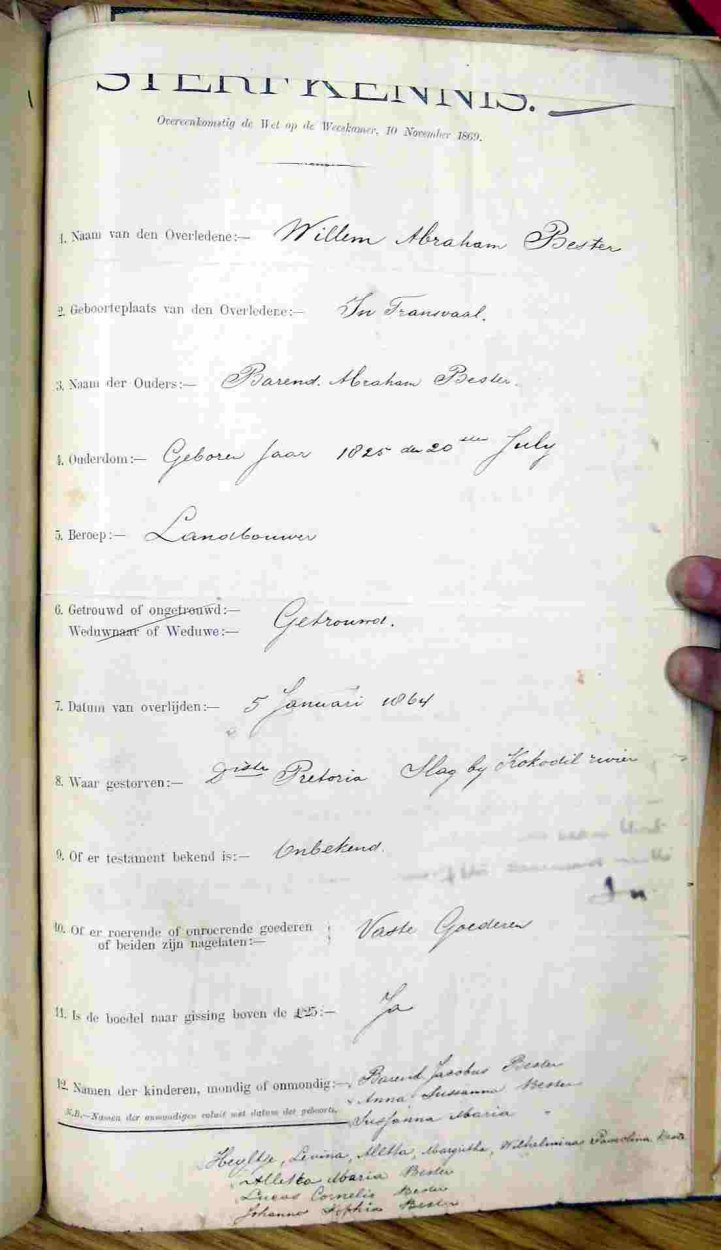 STERFKENNIS.
Overeenkomstig de Wet op de Weeskamer, 10 November 1869.
1. Naam van den Overledene:— Willem Abraham Bester
2. Geboorteplaats van den Overledene:— In Transvaal.
3. Naam der Ouders:— Barend Abraham Bester.
4. Ouderdom:— Geboren Jaar 1825 den 20sten July
5. Beroep:— Landbouwer
6. Getrouwd of ongetrouwd:—
Weduwnaar of Weduwe:— Getrouwd.
7. Datum van overlijden:— 5 Januari 1864
8. Waar gestorven:— Distr Pretoria Slag by Kokodil rivier
9. Of er testament bekend is:— Onbekend.
10. Of er roerende of onroerende goederen
of beiden zijn nagelaten:— Vaste Goederen
11. Is de boedel naar gissing boven de £25:— Ja
12. Namen der kinderen, mondig of onmondig:— Barend Jacobus Bester
Anna Sussanna Bester
N.B.—Namen der onmondigen voluit met datum der geboorte.
Sussanna Maria "
Heyltje, Levina, Aletta, Margritha, Wilhelmina
Alletta Maria Bester
Lucas Cornelis Bester
Johanna Sophia Bester